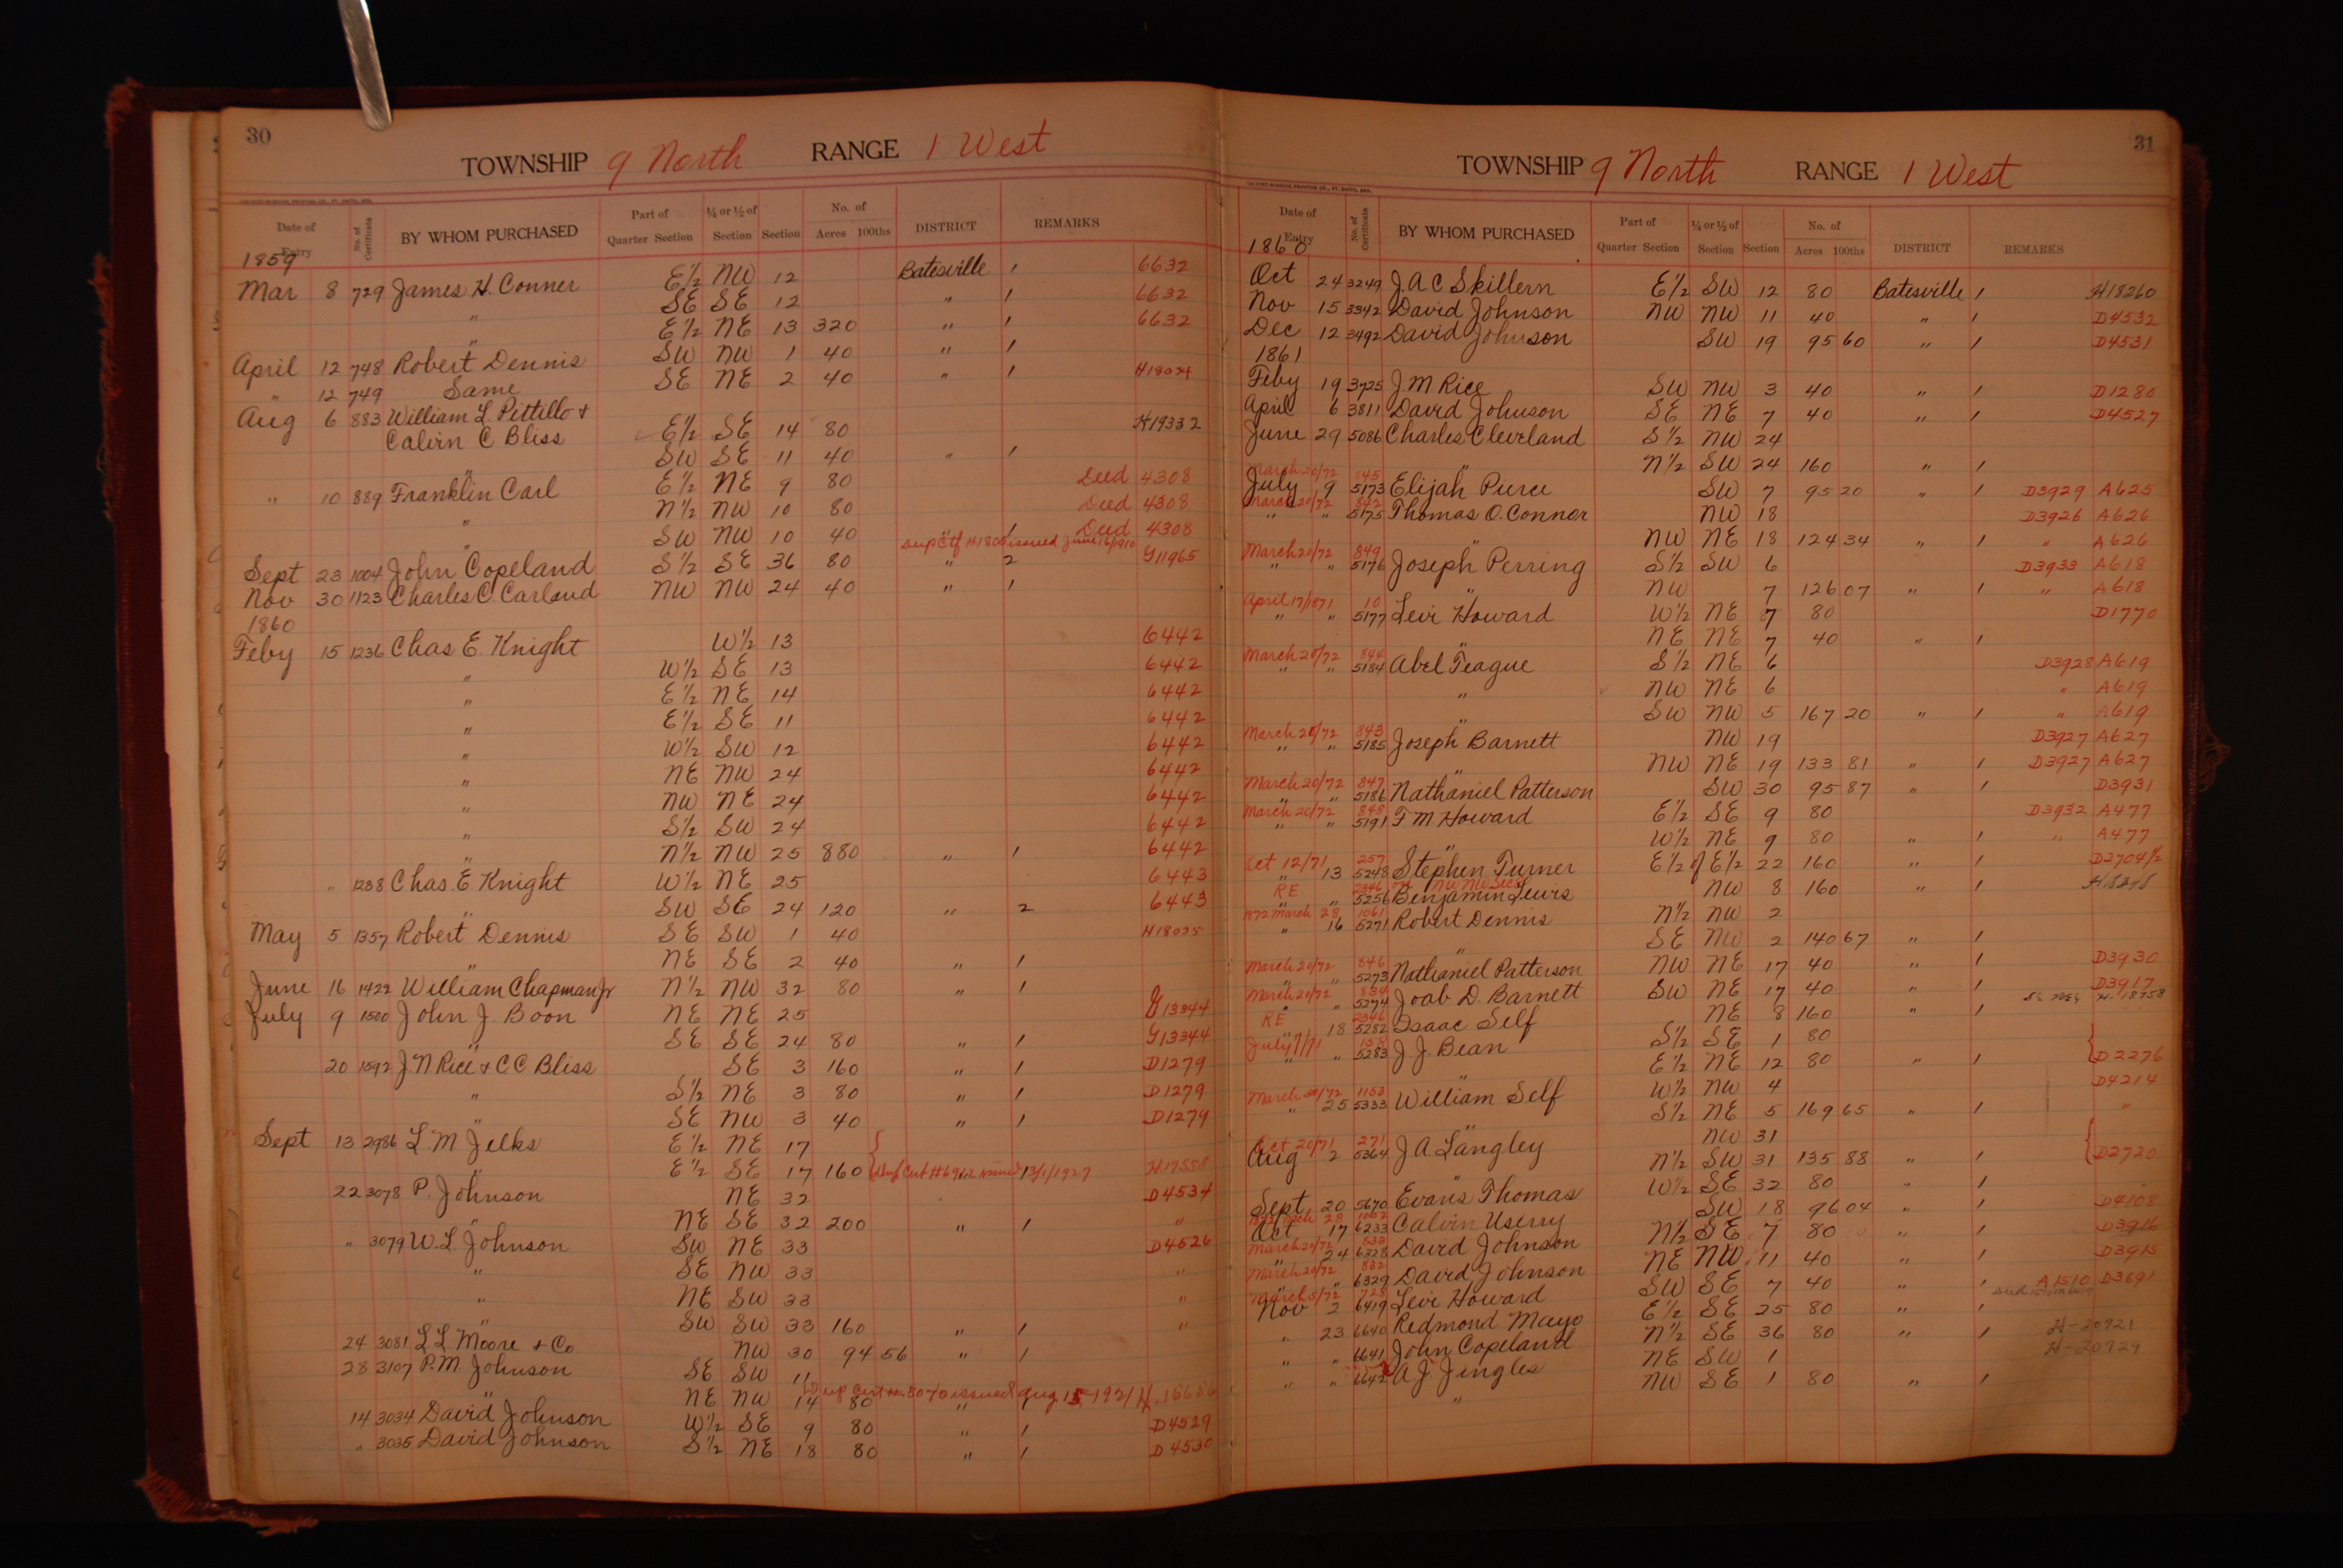 30
TOWNSHIP 9 North RANGE 1 West
Date of Entry No. of Certificate BY WHOM PURCHASED Part of Quarter Section ¼ or ½ of Section Section No. of Acres 100ths DISTRICT REMARKS
1859
Mar 8 729 James H. Conner E½ NW 12 Batesville 1 6632
" SE SE 12 " 1 6632
" E½ NE 13 320 " 1 6632
April 12 748 Robert Dennis SW NW 1 40 " 1
" 12 749 Same SE NE 2 40 " 1 H18024
Aug 6 883 William L. Pittillo &
Calvin C Bliss E½ SE 14 80 H19332
" SW SE 11 40 " 1
" 10 889 Franklin Carl E½ NE 9 80 Deed 4308
" N½ NW 10 80 Deed 4308
" SW NW 10 40 " 1 Deed 4308
issued June 16/1910
Sept 23 1004 John Copeland S½ SE 36 80 " 2 G11965
Nov 30 1123 Charles C. Carland NW NW 24 40 " 1
1860
Feby 15 1236 Chas E. Knight W½ 13 6442
" W½ SE 13 6442
" E½ NE 14 6442
" E½ SE 11 6442
" W½ SW 12 6442
" NE NW 24 6442
" NW NE 24 6442
" S½ SW 24 6442
" N½ NW 25 880 " 1 6442
" 1238 Chas. E Knight W½ NE 25 6443
" SW SE 24 120 " 2 6443
May 5 1357 Robert Dennis SE SW 1 40 H18025
" NE SE 2 40 " 1
June 16 1422 William Chapman Jr N½ NW 32 80 " 1
July 9 1500 John J. Boon NE NE 25 G13344
" SE SE 24 80 " 1 G13344
20 1592 J N Rice & C C Bliss SE 3 160 " 1 D1279
" S½ NE 3 80 " 1 D1279
" SE NW 3 40 " 1 D1279
Sept 13 2986 L. M Jelks E½ NE 17
" E½ SE 17 160 Dup Cert #6962 issued 13/1/1927 H17558
22 3078 P. Johnson NE 32 D4534
" NE SE 32 200 " 1 "
" 3079 W. L Johnson SW NE 33 D4526
" SE NW 33 "
" NE SW 33 "
" SW SW 33 160 " 1 "
24 3081 L L Moore & Co NW 30 94 56 " 1
28 3107 P. M. Johnson SE SW 11
" NE NW 14 80 " 1 issued Aug 15, 1921
14 3034 David Johnson W½ SE 9 80 " 1 D4529
" 3035 David Johnson S½ NE 18 80 " 1 D4530
31
TOWNSHIP 9 North RANGE 1 West
Date of Entry No. of Certificate BY WHOM PURCHASED Part of Quarter Section ¼ or ½ of Section Section No. of Acres 100ths DISTRICT REMARKS
1860
Oct 24 3249 J. A C Skillern E½ SW 12 80 Batesville 1 H18260
Nov 15 3342 David Johnson NW NW 11 40 " 1 D4532
Dec 12 3492 David Johnson SW 19 95 60 " 1 D4531
1861
Feby 19 3725 J M Rice SW NW 3 40 " 1 D1280
April 6 3811 David Johnson SE NE 7 40 " 1 D4527
June 29 5086 Charles Cleveland S½ NW 24
" N½ SW 24 160 " 1
March 20/72 845
July 9 5173 Elijah Purce SW 7 95 20 " 1 D3929 A625
March 20/72 842
" " 5175 Thomas O. Connor NW 18 D3926 A626
" NW NE 18 124 34 " 1 " A626
March 20/72 849
" " 5176 Joseph Perring S½ SW 6 D3933 A618
" NW 7 126 07 " 1 " A618
April 17/1871 10
" " 5177 Levi Howard W½ NE 7 80 D1770
" NE NE 7 40 " 1
March 20/72 844
" " 5184 Abel Teague S½ NE 6 D3928 A619
" NW NE 6 " A619
" SW NW 5 167 20 " 1 " A619
March 20/72 843
" " 5185 Joseph Barnett NW 19 D3927 A627
" NW NE 19 133 81 " 1 D3927 A627
March 20/72 847
" " 5186 Nathaniel Patterson SW 30 95 87 " 1 D3931
March 20/72 848
" " 5191 T M Howard E½ SE 9 80 D3932 A477
" W½ NE 9 80 " 1 " A477
Oct 12/71 257
" 13 5248 Stephen Turner E½ of E½ 22 160 " 1 D2704½
RE 2346
" " 5256 Benjamin Lewis NW 8 160 " 1
1872 March 28 1061
" 16 5271 Robert Dennis N½ NW 2
" SE NW 2 140 67 " 1
March 20/72 846
" " 5273 Nathaniel Patterson NW NE 17 40 " 1 D3930
March 20/72 834
" " 5274 Joab D. Barnett SW NE 17 40 " 1 D3917
RE 2346
18 5282 Isaac Self NE 8 160 " 1 H-18758
July 7/71 158
" " 5283 J J Bean S½ SE 1 80
" E½ NE 12 80 " 1 D2276
March 20/72 1153
" 25 5333 William Self W½ NW 4 D4214
" S½ NE 5 169 65 " 1 "
Oct 20/71 271
Aug 2 5364 J A Langley NW 31
" N½ SW 31 135 88 " 1 D2720
Sept 20 5670 Evans Thomas W½ SE 32 80 " 1
1872 Mch 28 1052
Oct 17 6233 Calvin Userry SW 18 96 04 " 1 D4108
March 20/72 833
" 24 6328 David Johnson N½ SE 7 80 " 1 D3916
March 20/72 832
" " 6329 David Johnson NE NW 11 40 " 1 D3915
March 5/72 728
Nov 2 6419 Levi Howard SW SE 7 40 " 1 A1510 D3691
" 23 6640 Redmond Mayo E½ SE 25 80 " 1
" " 6641 John Copeland N½ SE 36 80 " 1 H-20921
" " 6642 A J Jingles NE SW 1 H-20929
" NW SE 1 80 " 1